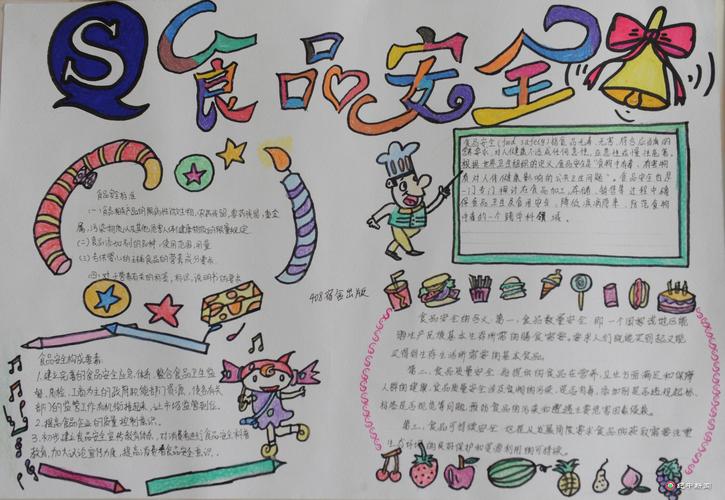 食品安全
食品安全(food safety)指食品无毒、无害，符合应当有的
营养要求，对人体健康不造成任何急性、亚急性或慢性危害。
根据世界卫生组织的定义，食品安全是"食物中有毒、有害物
质对人体健康影响的公共卫生问题"。食品安全也是
一门专门探讨在食品加工、存储、销售等过程中确
保食品卫生及食用安全，降低疾病隐患，防范食物
中毒的一个跨学科领域。
食品安全标准
(一)食品相关产品的致病性微生物、农药残留、兽药残留、重金
属、污染物质以及其他危害人体健康物质的限量规定
(二)食品添加剂的品种、使用范围、用量
(三)专供婴幼的主辅食品的营养成分要求
(四)对于营养有关的标签、标识、说明书的要求
408宿舍出版
食品安全构成要素
1.建立完善的食品安全应急体系，整合食品卫生监
督、质检、工商为主的政府职能部门资源，使各有关
部门的监管工作有机衔接起来，让市场监管到位。
2.提高食品企业的质量控制意识。
3.初步建立食品安全宣传教育体系，对消费者进行食品安全科普
教育，加大舆论宣传力度，提高消费者食品安全意识。
食品安全的含义 第一：食品数量安全 即一个国家或地区能
够生产民族基本生存所需的膳食需要。要求人们既能买到又能买
得到生存生活所需要的基本食品。
第二：食品质量安全 指提供的食品在营养，卫生方面满足和保障
人群的健康，食品质量安全涉及食物的污染、是否有毒，添加剂是否违规超标、
标签是否规范等问题，预防食品的污染和遭遇主要危害因素侵袭。
第三：食品可持续安全 这是从发展角度要求食品的获取需要注重
生态环境的良好保护和资源利用的可持续。